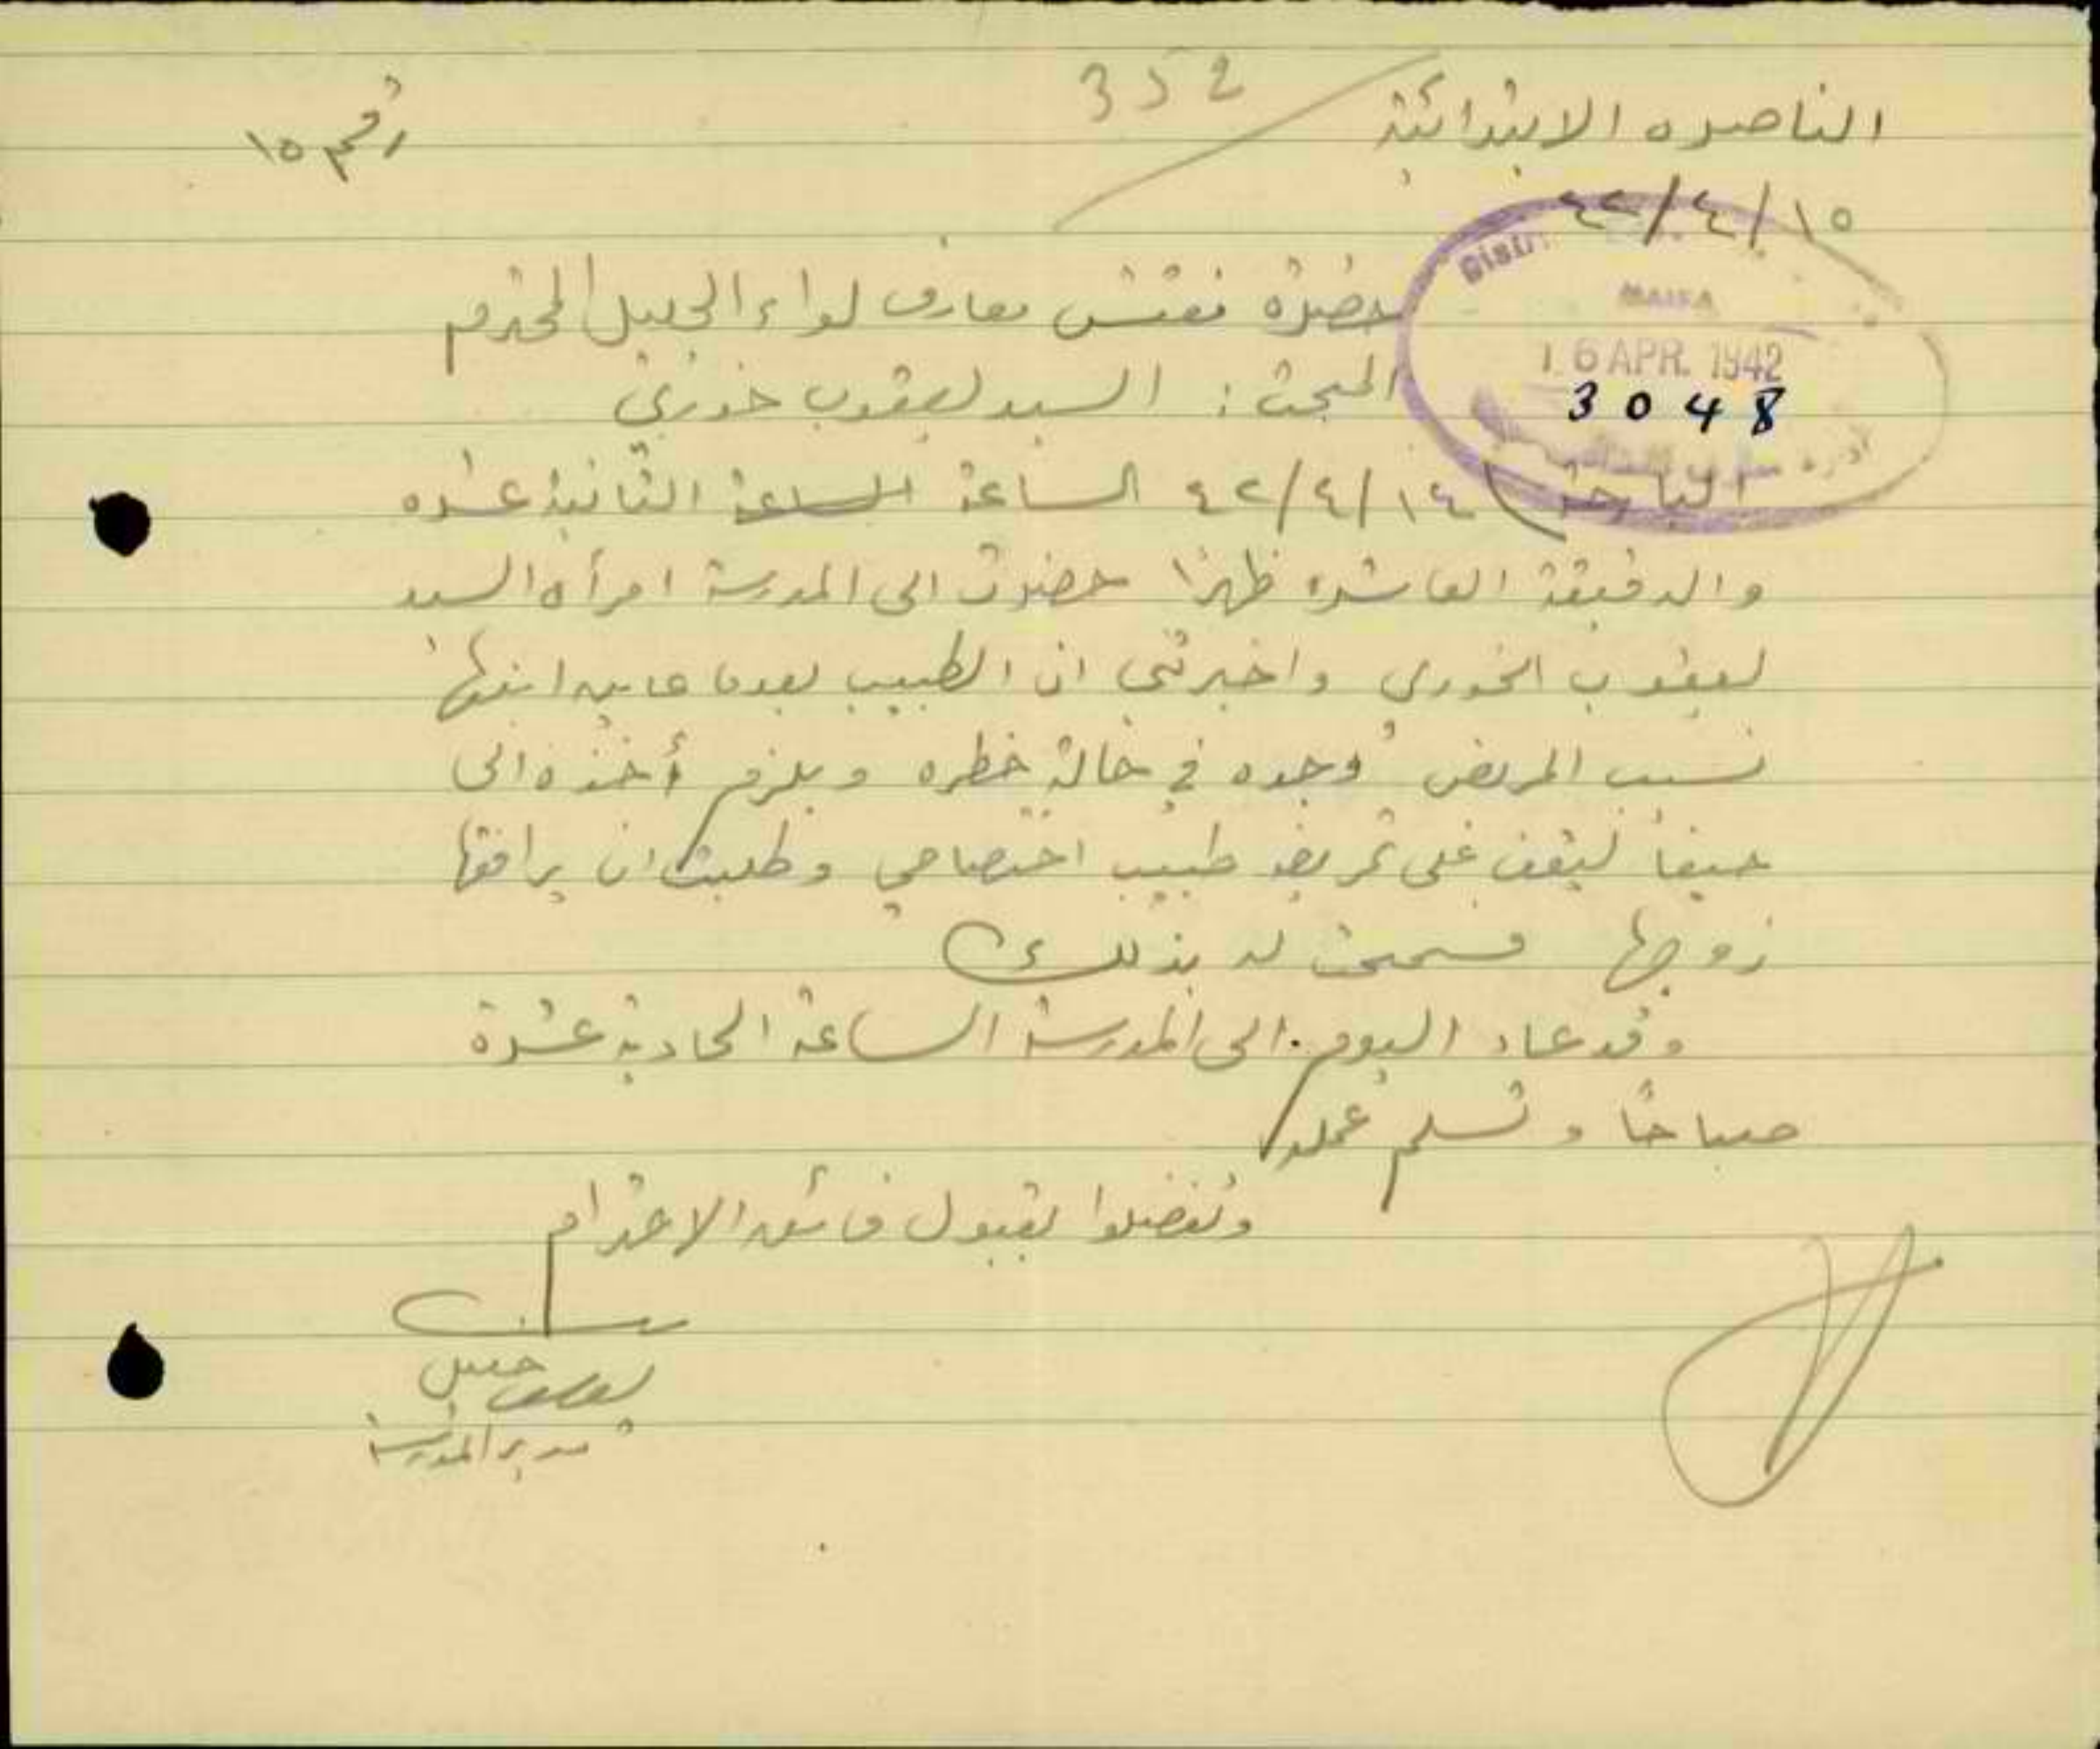 352
الناصره الابتدائية
رقم ١٥
١٥/٤/٤٢
حضرة مفتش معارف لواء الجليل المحترم
HAIFA
16 APR. 1942
3048
المبحث : السيد يعقوب خوري
البارحة ١٤/٤/٤٢ الساعة الساعة الثانية عشره
والدقيقة العاشره ظهرًا حضرت الى المدرسة امرأة السيد
يعقوب الخوري واخبرتني ان الطبيب بعدما عاين ابنها
نسيب المريض وجده في حالة خطره ويلزم أخذه الى
حيفا ليقف على تمريضه طبيب اختصاصي وطلبت ان يرافقها
زوجها فسمحت له بذلك
وقد عاد اليوم الى المدرسة الساعة الحادية عشرة
صباحًا وتسلم عمله
وتفضلوا بقبول فائق الاحترام
يوسف
مدير المدرسة